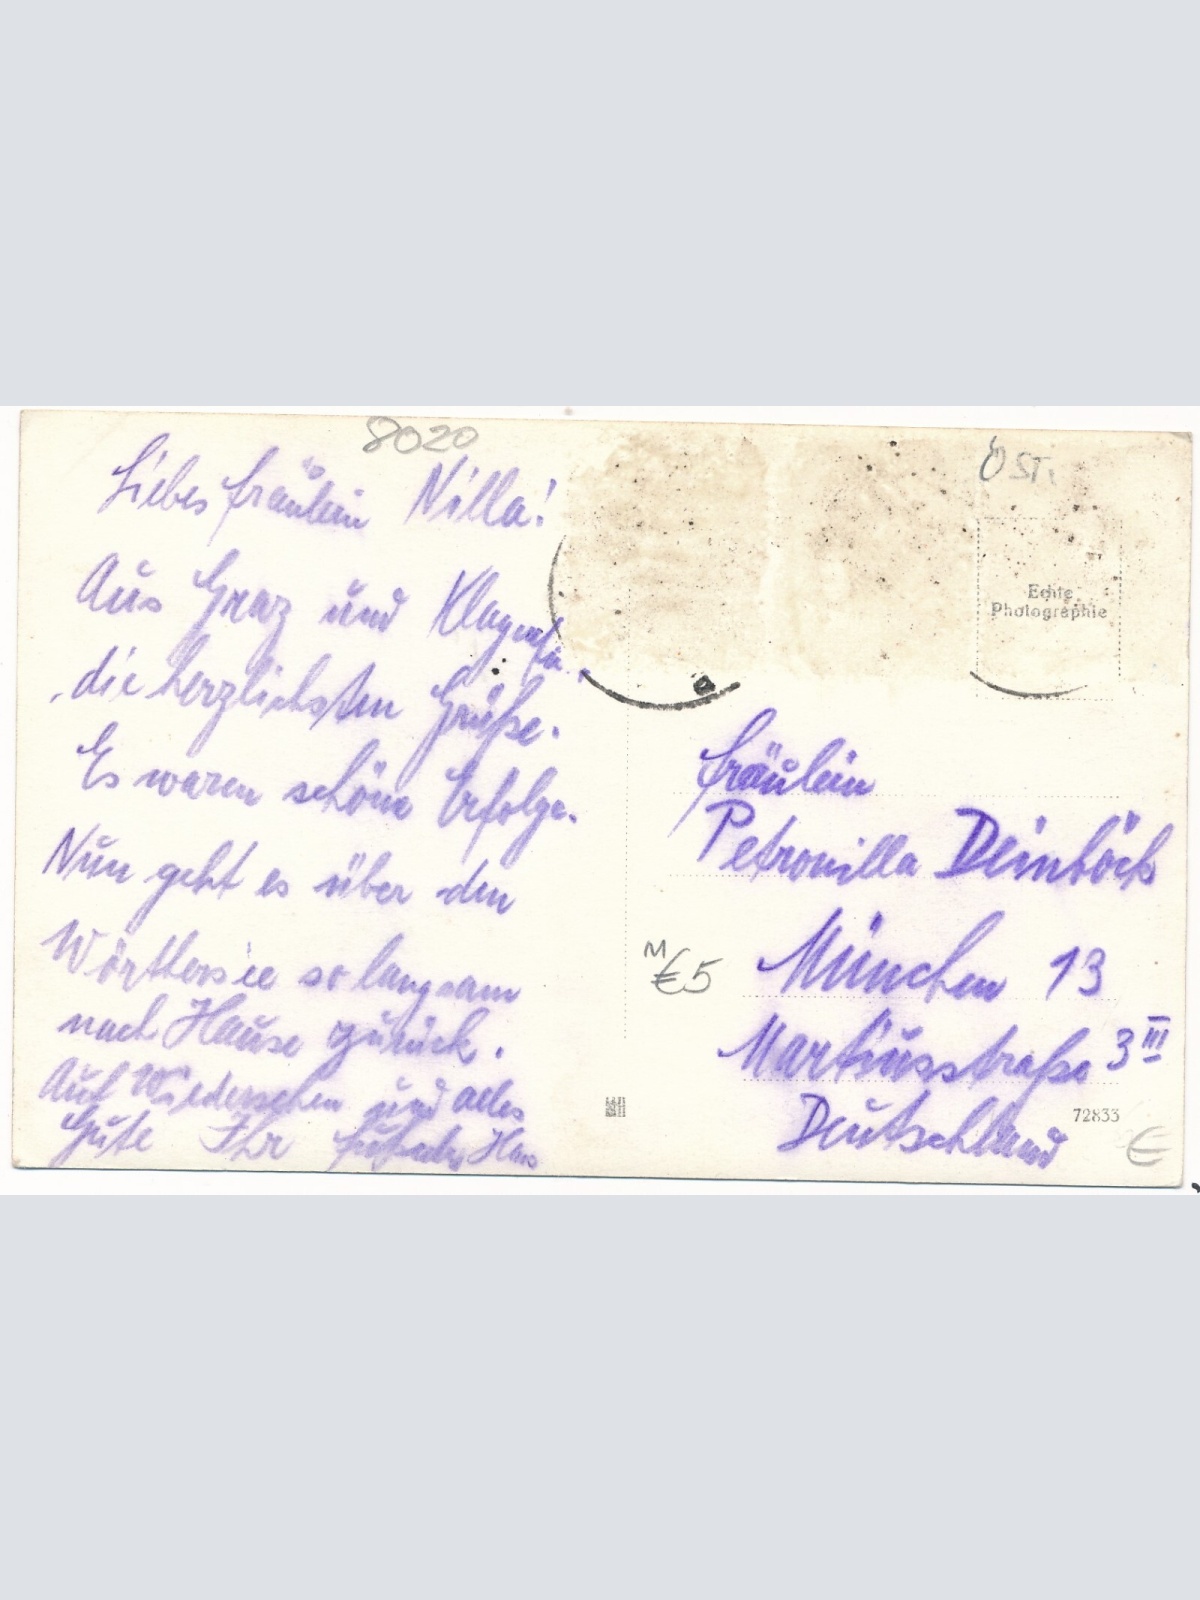 8020
Liebes Fräulein Nilla!
Aus Graz und Klagenfu.
die herzlichsten Grüße.
Es waren schöne Erfolge.
Nun geht es über den
Wörthersee so langsam
nach Hause zurück.
Auf Wiedersehen und alles
Gute Ihr Hans
ÖST.
Echte
Photographie
Fräulein
Petronilla Deinböck
München 13
Martiusstraße 3 III
Deutschland
M €5
72833
€